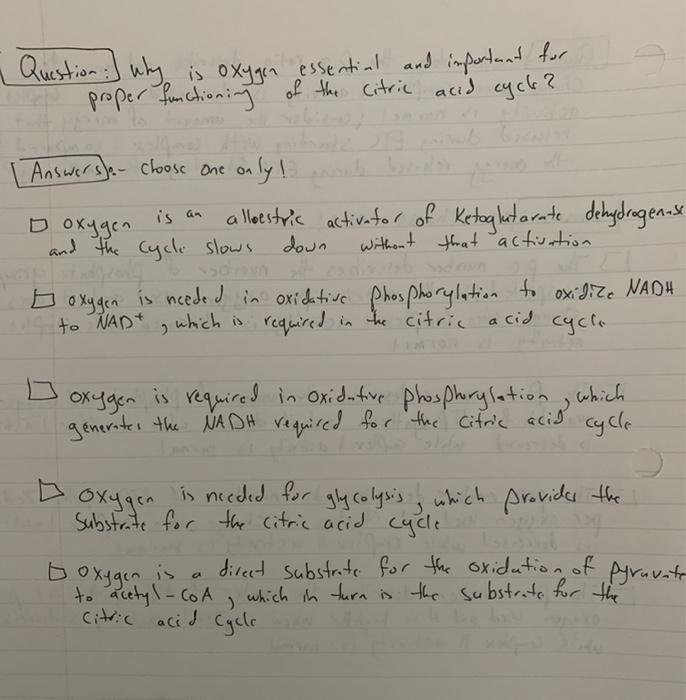 Question: Why is oxygen essential and important for
proper functioning of the citric acid cycle?
Answers:- choose one only!
□ oxygen is an alloestric activator of Ketoglutarate dehydrogenase
and the cycle slows down without that activation
□ oxygen is needed in oxidative phosphorylation to oxidize NADH
to NAD⁺, which is required in the citric acid cycle
□ oxygen is required in oxidative phosphorylation, which
generates the NADH required for the citric acid cycle
□ oxygen is needed for glycolysis, which provides the
substrate for the citric acid cycle
□ oxygen is a direct substrate for the oxidation of pyruvate
to acetyl-CoA, which in turn is the substrate for the
citric acid cycle